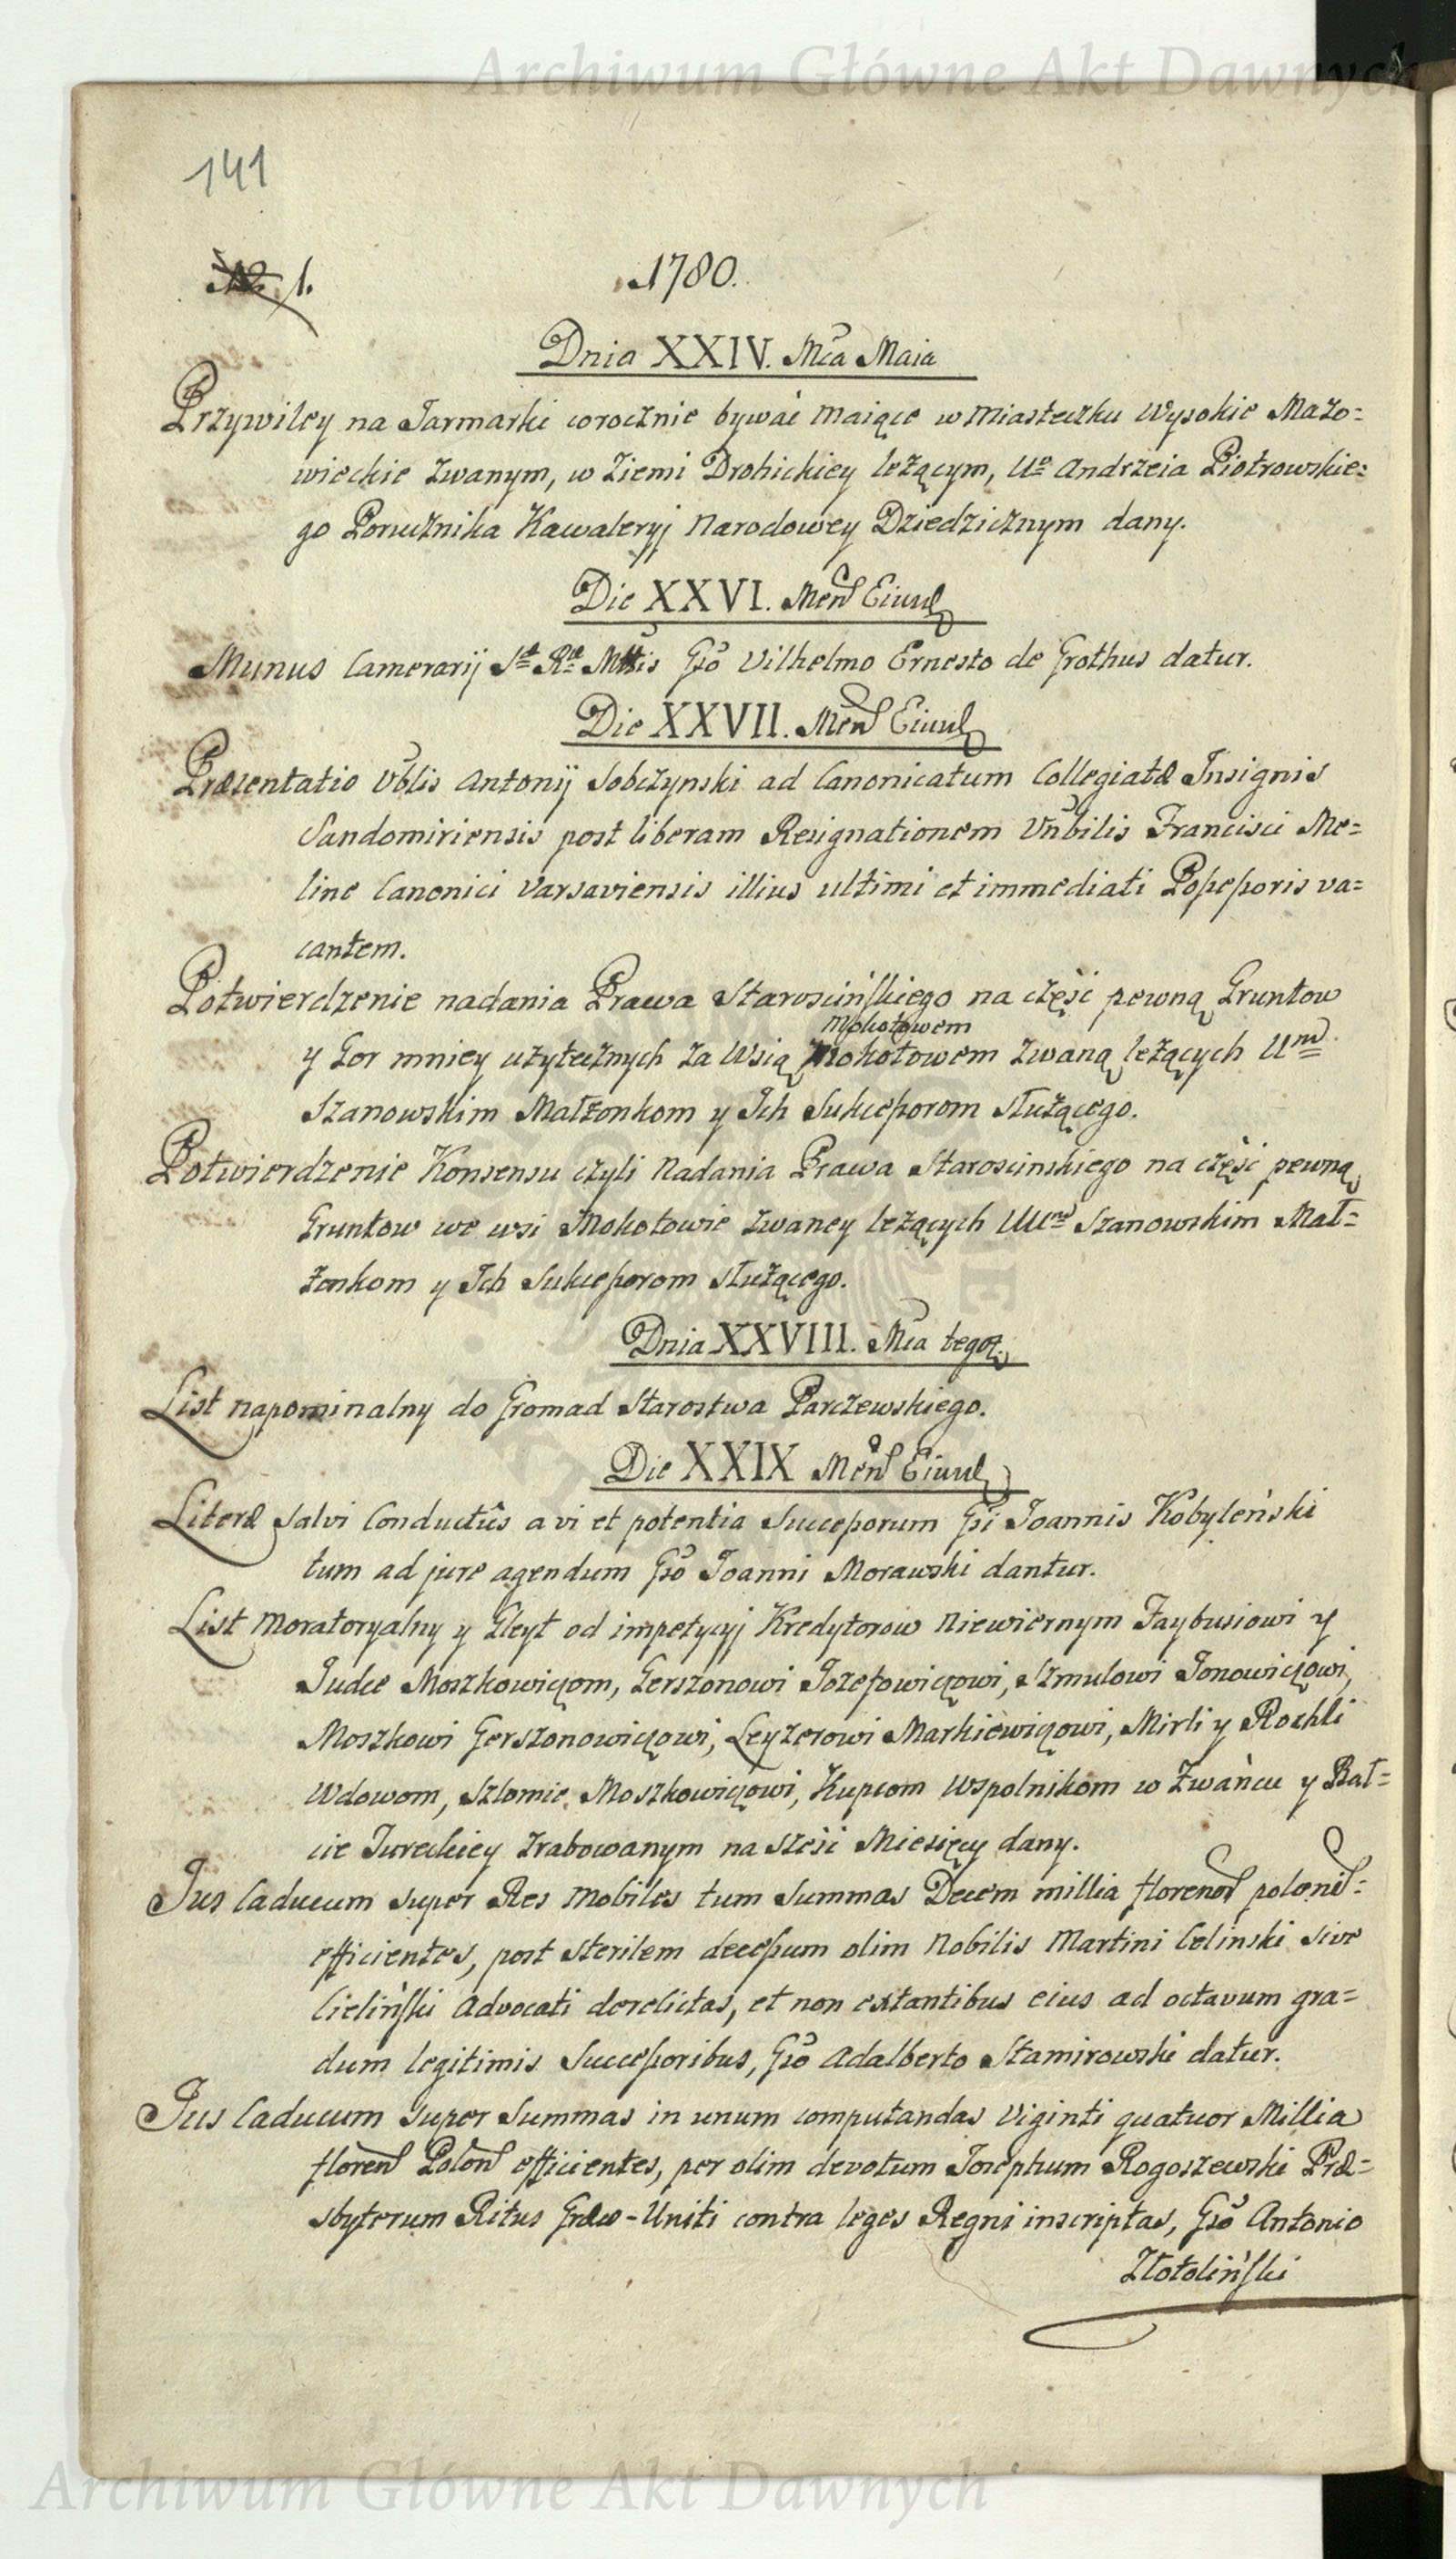 Archiwum Główne Akt Dawnych
141
1.
1780.
Dnia XXIV. Mca Maia
Przywiley na Jarmarki corocznie bywać maiące w Miasteczku Wysokie Mazo=
wieckie zwanym, w Ziemi Drohickiey leżącym, Uo Andrzeia Piotrowskie=
go Porucznika Kawaleryj Narodowey Dziedzicznym dany.
Die XXVI. Mens Eiusd
Munus Camerarij Sae Rae Mttis Gso Vilhelmo Ernesto de Grothus datur.
Die XXVII. Mens Eiusd
Præsentatio Vblis Antonij Sobczynski ad Canonicatum Collegiatæ Insignis
Sandomiriensis post liberam Resignationem Vnbilis Francisci Me=
line Canonici Varsaviensis illius ultimi et immediati Possessoris va=
cantem.
Potwierdzenie nadania Prawa Starościńskiego na część pewną Gruntow
Mokotowem
y Gor mniey użytecznych za Wsią Mokotowem zwaną leżących Um
Szanowskim Małżonkom y Ich Sukcessorom służącego.
Potwierdzenie Konsensu czyli Nadania Prawa Staroscinskiego na część pewną
Gruntow we wsi Mokotowie zwaney leżących UUm Szanowskim Mał=
żonkom y Ich Sukcessorom służącego.
Dnia XXVIII. Mca tegoż.
List napominalny do Gromad Starostwa Parczewskiego.
Die XXIX Mens Eiusd
Literæ Salvi Conductûs a vi et potentia Successorum Gsi Joannis Kobyleński
tum ad jure agendum Gso Joanni Morawski dantur.
List Moratoryalny y Gleyt od impetycyj Kredytorow Niewiernym Faybusiowi y
Judce Moszkowiczom, Gerszonowi Jozefowiczowi, Szmulowi Jonowiczowi,
Moszkowi Gerszonowiczowi, Leyzerowi Markiewiczowi, Mirli y Rochli
Wdowom, Szlomie Moszkowiczowi, Kupcom Wspolnikom w Zwańcu y Bał=
cie Tureckiey zrabowanym na sześć Miesięcy dany.
Jus Caducum super Res Mobiles tum Summas Decem millia florenos polonis=
efficientes, post sterilem decessum olim Nobilis Martini Celinski sive
Cieliński Advocati derelictas, et non extantibus eius ad octavum gra=
dum legitimis Successoribus, Gso Adalberto Stamirowski datur.
Jus Caducum super Summas in unum computandas Viginti quatuor Millia
floren Polon efficientes, per olim devotum Josephum Rogoszewski Præ=
sbyterum Ritus Græco-Uniti contra leges Regni inscriptas, Gso Antonio
Złotoliński
Archiwum Główne Akt Dawnych